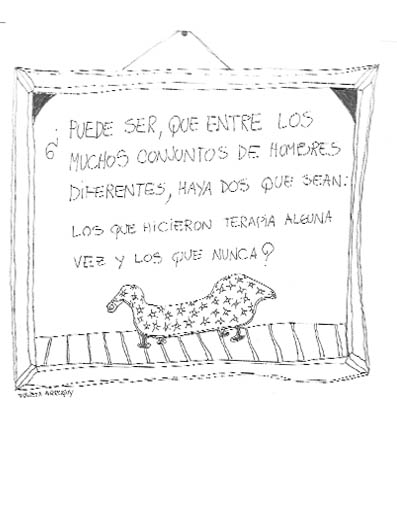 ¿ PUEDE SER, QUE ENTRE LOS
MUCHOS CONJUNTOS DE HOMBRES
DIFERENTES, HAYA DOS QUE SEAN:
LOS QUE HICIERON TERAPIA ALGUNA
VEZ Y LOS QUE NUNCA?